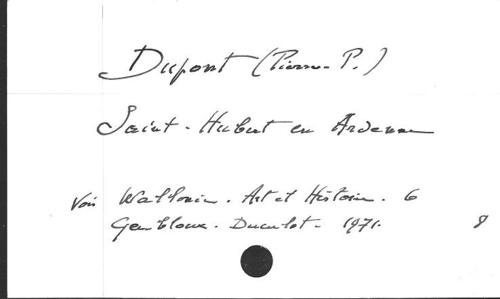 Dupont (Pierre-P.)
Saint-Hubert en Ardenne
Voir Wallonie. Art et Histoire. 6
Gembloux. Duculot. 1971. 8